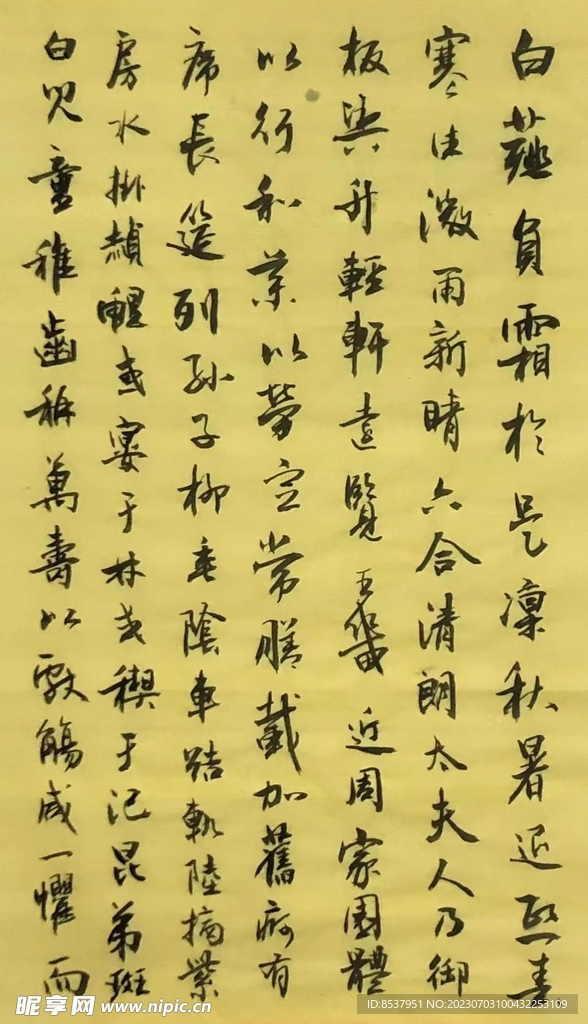 白薤負霜於是凜秋暑退熙春
寒往微雨新晴六合清朗太夫人乃御
板輿升輕軒遠覽王畿近周家園體
以行和藥以勞宣常膳載加舊痾有
席長筵列孫子柳垂陰車結軌陸摘紫
房水掛赬鯉或宴于林或禊于汜昆弟斑
白兒童稚齒稱萬壽以獻觴咸一懼而
昵享网 www.nipic.cn
ID:8537951 NO:20230703100432253109